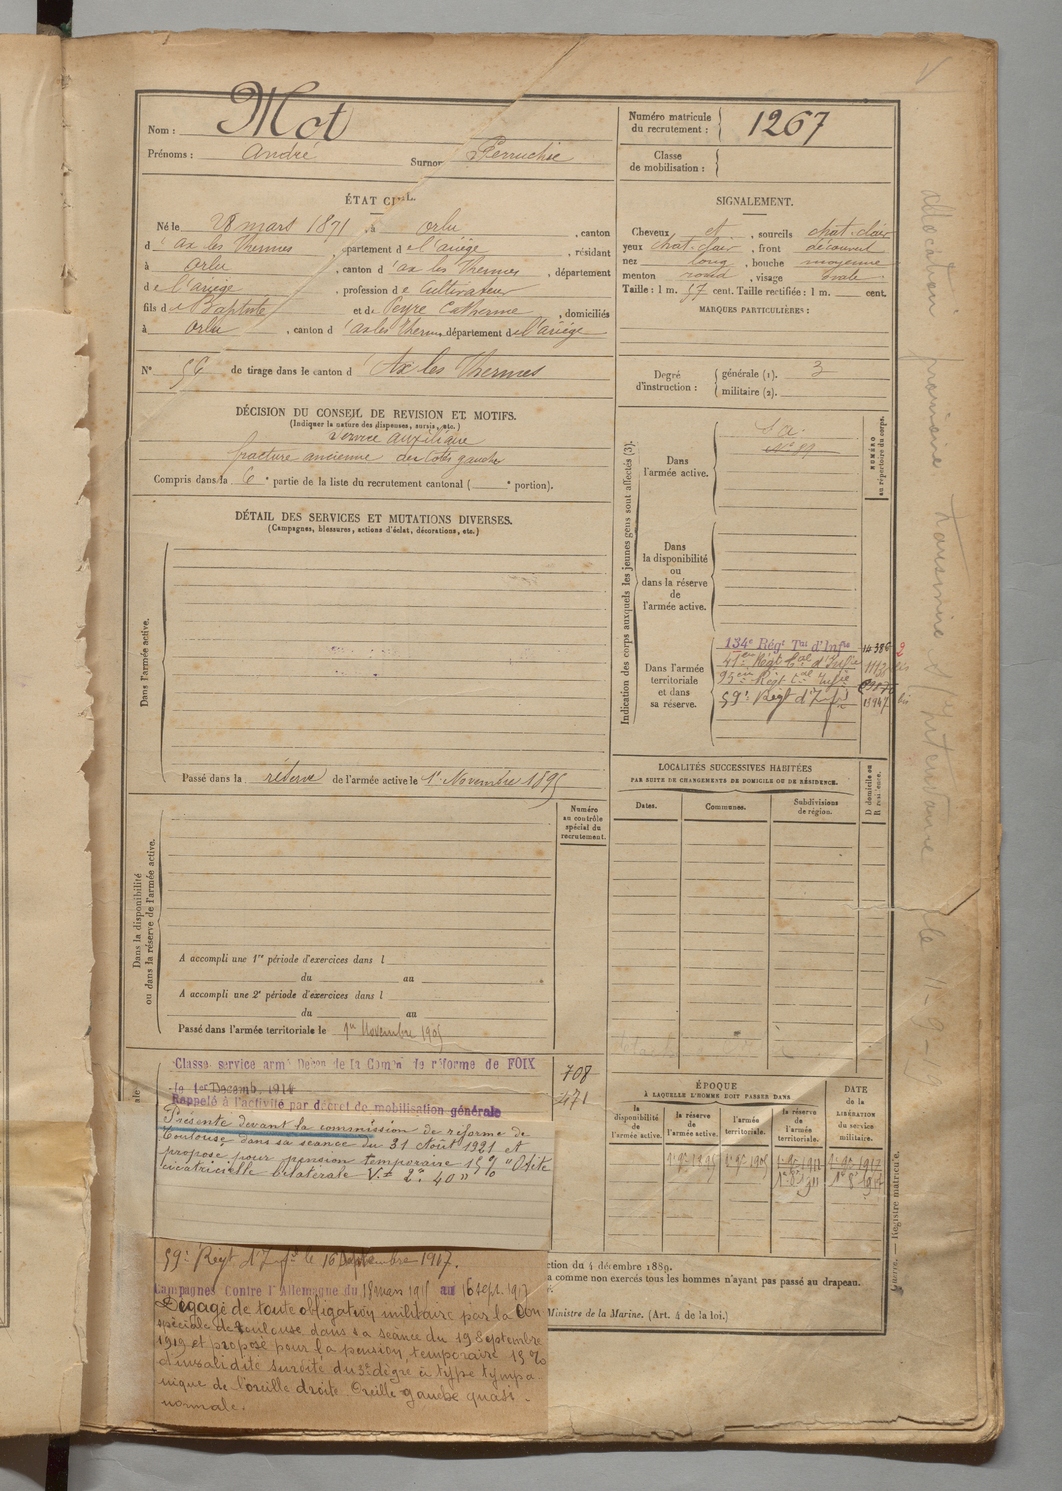 Nom : Mot
Prénoms : André Surnom Perruchie
Numéro matricule du recrutement : 1267
Classe de mobilisation :
ÉTAT CIVIL.
Né le 28 mars 1871 à Orlu , canton
d' ax les thermes , département de l'ariège , résidant
à Orlu , canton d' ax les thermes , département
de l'ariège , profession de Cultivateur
fils de Baptiste et de Peyre Catherine , domiciliés
à Orlu , canton d' ax les thermes département de l'ariège
N° 56 de tirage dans le canton d' Ax les Thermes
SIGNALEMENT.
Cheveux et , sourcils chat. clair
yeux chat. clair , front découvert
nez long , bouche moyenne
menton rond , visage ovale
Taille : 1 m. 57 cent. Taille rectifiée : 1 m. cent.
MARQUES PARTICULIÈRES :
Degré d'instruction : générale (1). 3
militaire (2).
DÉCISION DU CONSEIL DE REVISION ET MOTIFS.
(Indiquer la nature des dispenses, sursis, etc.)
Service auxiliaire
fracture ancienne des côtes gauches
Compris dans la 6e partie de la liste du recrutement cantonal ( e portion).
DÉTAIL DES SERVICES ET MUTATIONS DIVERSES.
(Campagnes, blessures, actions d'éclat, décorations, etc.)
Dans l'armée active.
Passé dans la réserve de l'armée active le 1er Novembre 1895
Indication des corps auxquels les jeunes gens sont affectés (3).
NUMÉRO au répertoire du corps.
Dans l'armée active.
S. a.
Dans la disponibilité ou dans la réserve de l'armée active.
Dans l'armée territoriale et dans sa réserve.
134e Régt Tal d'Infie
95em Régt tal Infie
59e Régt d'Inf
LOCALITÉS SUCCESSIVES HABITÉES
PAR SUITE DE CHANGEMENTS DE DOMICILE OU DE RÉSIDENCE.
Dates. Communes. Subdivisions de région. D domicile ou R résidence.
Dans la disponibilité ou dans la réserve de l'armée active.
Numéro au contrôle spécial du recrutement.
A accompli une 1re période d'exercices dans l
du au
A accompli une 2e période d'exercices dans l
du au
Passé dans l'armée territoriale le 1er Novembre 1905
Classé service armé Décon de la Comon de réforme de FOIX
le 1er Decemb. 1914
Rappelé à l'activité par décret de mobilisation générale
708
471
Présenté devant la commission de réforme de
Toulouse dans sa séance du 31 Août 1921 et
proposé pour pension temporaire 15% "Otite
cicatricielle bilatérale V.
59e Régt d'Inf le 16 Septembre 1917.
Campagnes Contre l'Allemagne du 18 mars 1915 au 16 sept. 1917
Dégagé de toute obligation militaire par la Con
spéciale de Toulouse dans sa séance du 19 Septembre
1919 et proposé pour la pension temporaire 15%
d'invalidité surdité du 3e degré à type tympa-
nique de l'oreille droite. Oreille gauche quasi-
normale.
ÉPOQUE
À LAQUELLE L'HOMME DOIT PASSER DANS
la disponibilité de l'armée active. la réserve de l'armée active. l'armée territoriale. la réserve de l'armée territoriale.
DATE de la LIBÉRATION du service militaire.
ction du 4 décembre 1889.
a comme non exercés tous les hommes n'ayant pas passé au drapeau.
Ministre de la Marine. (Art. 4 de la loi.)
Guerre. — Registre matricule.